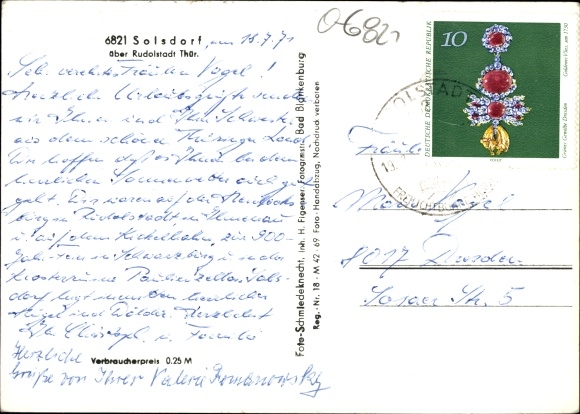 6821 Solsdorf, am 18.7.71
über Rudolstadt Thür.
Sehr verehrtes Fräulein Vogel!
Herzliche Urlaubsgrüße senden
wir Ihnen und Ihrer Schwester
aus dem schönen Thüringer Land.
Wir hoffen, daß es Ihnen bei dem
herrlichen Sommerwetter auch gut
geht. Wir waren auf der
in Rudolstadt, in Ilmenau
u. auf dem Kickelhahn, zur 900-
Jahr-Feier in Schwarzburg u. in der
Klosterruine Paulinzella. Sols-
dorf liegt inmitten herrlicher
Hügel und Wälder. Herzlichst
Ihr Christoph u. Familie
Herzliche
Grüße von Ihrer Valerie Romanowsky
Verbraucherpreis 0.25 M
Foto-Schmiedeknecht, Inh. H. Figenser, Fotogrmstr. Bad Blankenburg
Reg.-Nr. 18 - M 42 - 69 Foto-Handabzug, Nachdruck verboten
06821
10
DEUTSCHE DEMOKRATISCHE REPUBLIK
Goldenes Vlies, um 1750
Grünes Gewölbe Dresden
Fräulein
Vogel
8017 Dresden
Str. 5